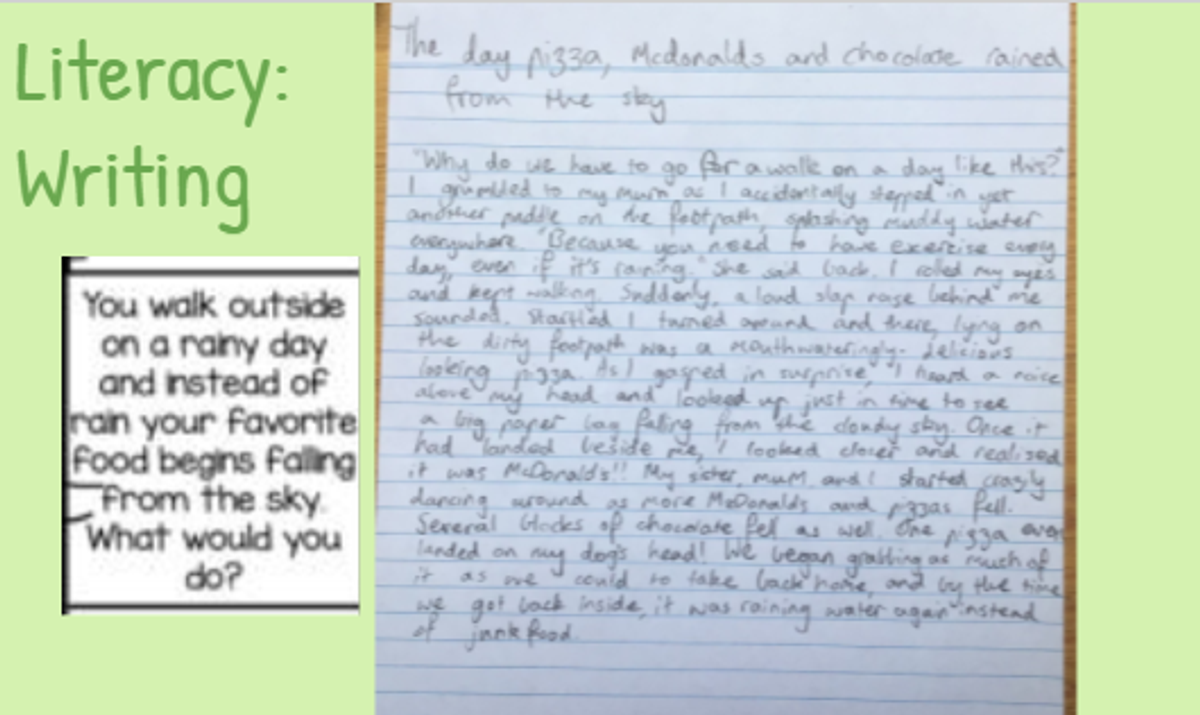 Literacy:
Writing
You walk outside
on a rainy day
and instead of
rain your favorite
food begins falling
from the sky.
What would you
do?
The day pizza, Mcdonalds and chocolate rained
from the sky
"Why do we have to go for a walk on a day like this?"
I grumbled to my mum as I accidentally stepped in yet
another puddle on the footpath, splashing muddy water
everywhere. "Because you need to have exercise every
day, even if it's raining." She said back. I rolled my eyes
and kept walking. Suddenly, a loud slap noise behind me
sounded. Startled I turned around and there, lying on
the dirty footpath was a mouthwateringly-delicious
looking pizza. As I gasped in surprise, I heard a noise
above my head and looked up just in time to see
a big paper bag falling from the cloudy sky. Once it
had landed beside me, I looked closer and realised
it was McDonald's!! My sister, mum and I started crazily
dancing around as more McDonalds and pizzas fell.
Several blocks of chocolate fell as well. One pizza even
landed on my dog's head! We began grabbing as much of
it as we could to take back home, and by the time
we got back inside, it was raining water again instead
of junk food.